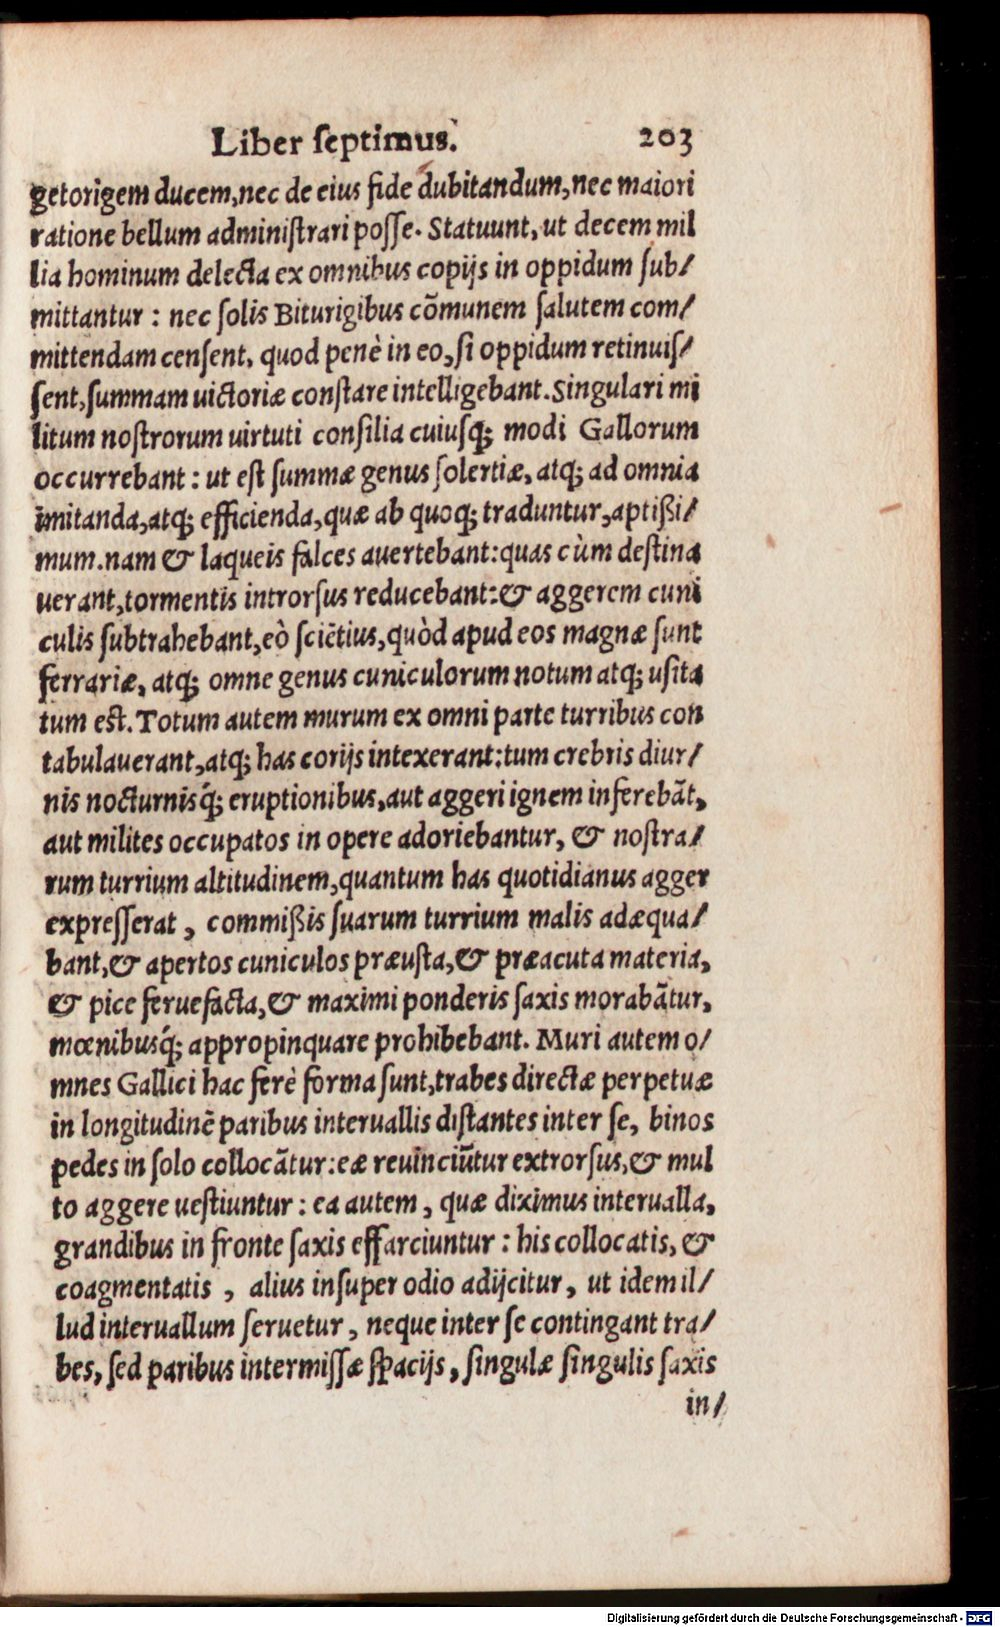 Liber ſeptimus. 203
getorigem ducem, nec de eius fide dubitandum, nec maiori
ratione bellum adminiſtrari poſſe. Statuunt, ut decem mil
lia hominum delecta ex omnibus copijs in oppidum ſub/
mittantur : nec ſolis Biturigibus cõmunem ſalutem com/
mittendam cenſent, quod penè in eo, ſi oppidum retinuiſ/
ſent, ſummam uictoriæ conſtare intelligebant. Singulari mi
litum noſtrorum uirtuti conſilia cuiuſq; modi Gallorum
occurrebant : ut eſt ſummæ genus ſolertiæ, atq; ad omnia
imitanda, atq; efficienda, quæ ab quoq; traduntur, aptißi/
mum. nam & laqueis falces auertebant: quas cùm deſtina
uerant, tormentis introrſus reducebant: & aggerem cuni
culis ſubtrahebant, eò ſciẽtius, quòd apud eos magnæ ſunt
ferrariæ, atq; omne genus cuniculorum notum atq; uſita
tum eſt. Totum autem murum ex omni parte turribus con
tabulauerant, atq; has corijs intexerant: tum crebris diur/
nis nocturnisq́; eruptionibus, aut aggeri ignem inferebãt,
aut milites occupatos in opere adoriebantur, & noſtra/
rum turrium altitudinem, quantum has quotidianus agger
expreſſerat, commißis ſuarum turrium malis adæqua/
bant, & apertos cuniculos præuſta, & præacuta materia,
& pice feruefacta, & maximi ponderis ſaxis morabãtur,
mœnibusq́; appropinquare prohibebant. Muri autem o/
mnes Gallici hac ferè forma ſunt, trabes directæ perpetuæ
in longitudinẽ paribus interuallis diſtantes inter ſe, binos
pedes in ſolo collocãtur: eæ reuinciũtur extrorſus, & mul
to aggere ueſtiuntur : ea autem, quæ diximus interualla,
grandibus in fronte ſaxis effarciuntur : his collocatis, &
coagmentatis, alius inſuper odio adijcitur, ut idem il/
lud interuallum ſeruetur, neque inter ſe contingant tra/
bes, ſed paribus intermiſſæ ſpacijs, ſingulæ ſingulis ſaxis
in/
Digitalisierung gefördert durch die Deutsche Forschungsgemeinschaft - DFG